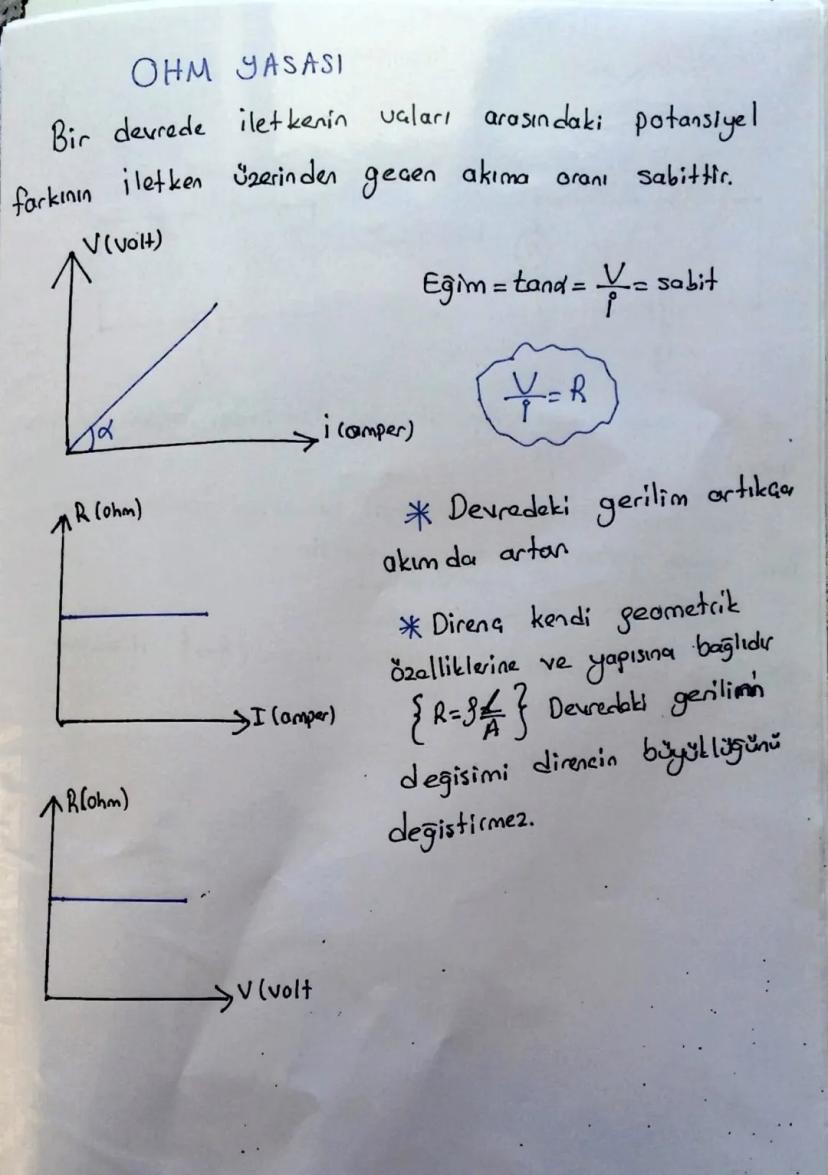 OHM YASASI
Bir devrede iletkenin uçları arasındaki potansiyel
farkının iletken üzerinden geçen akıma oranı sabittir.
V(volt)
Eğim = tanα = V/i = sabit
V/i = R
α
i (amper)
R (ohm)
* Devredeki gerilim artıkça
akım da artar
* Direnç kendi geometrik
özelliklerine ve yapısına bağlıdır
{ R = ρ L/A } Devredeki gerilimin
I (amper)
değişimi direncin büyüklüğünü
R(ohm)
değiştirmez.
V (volt